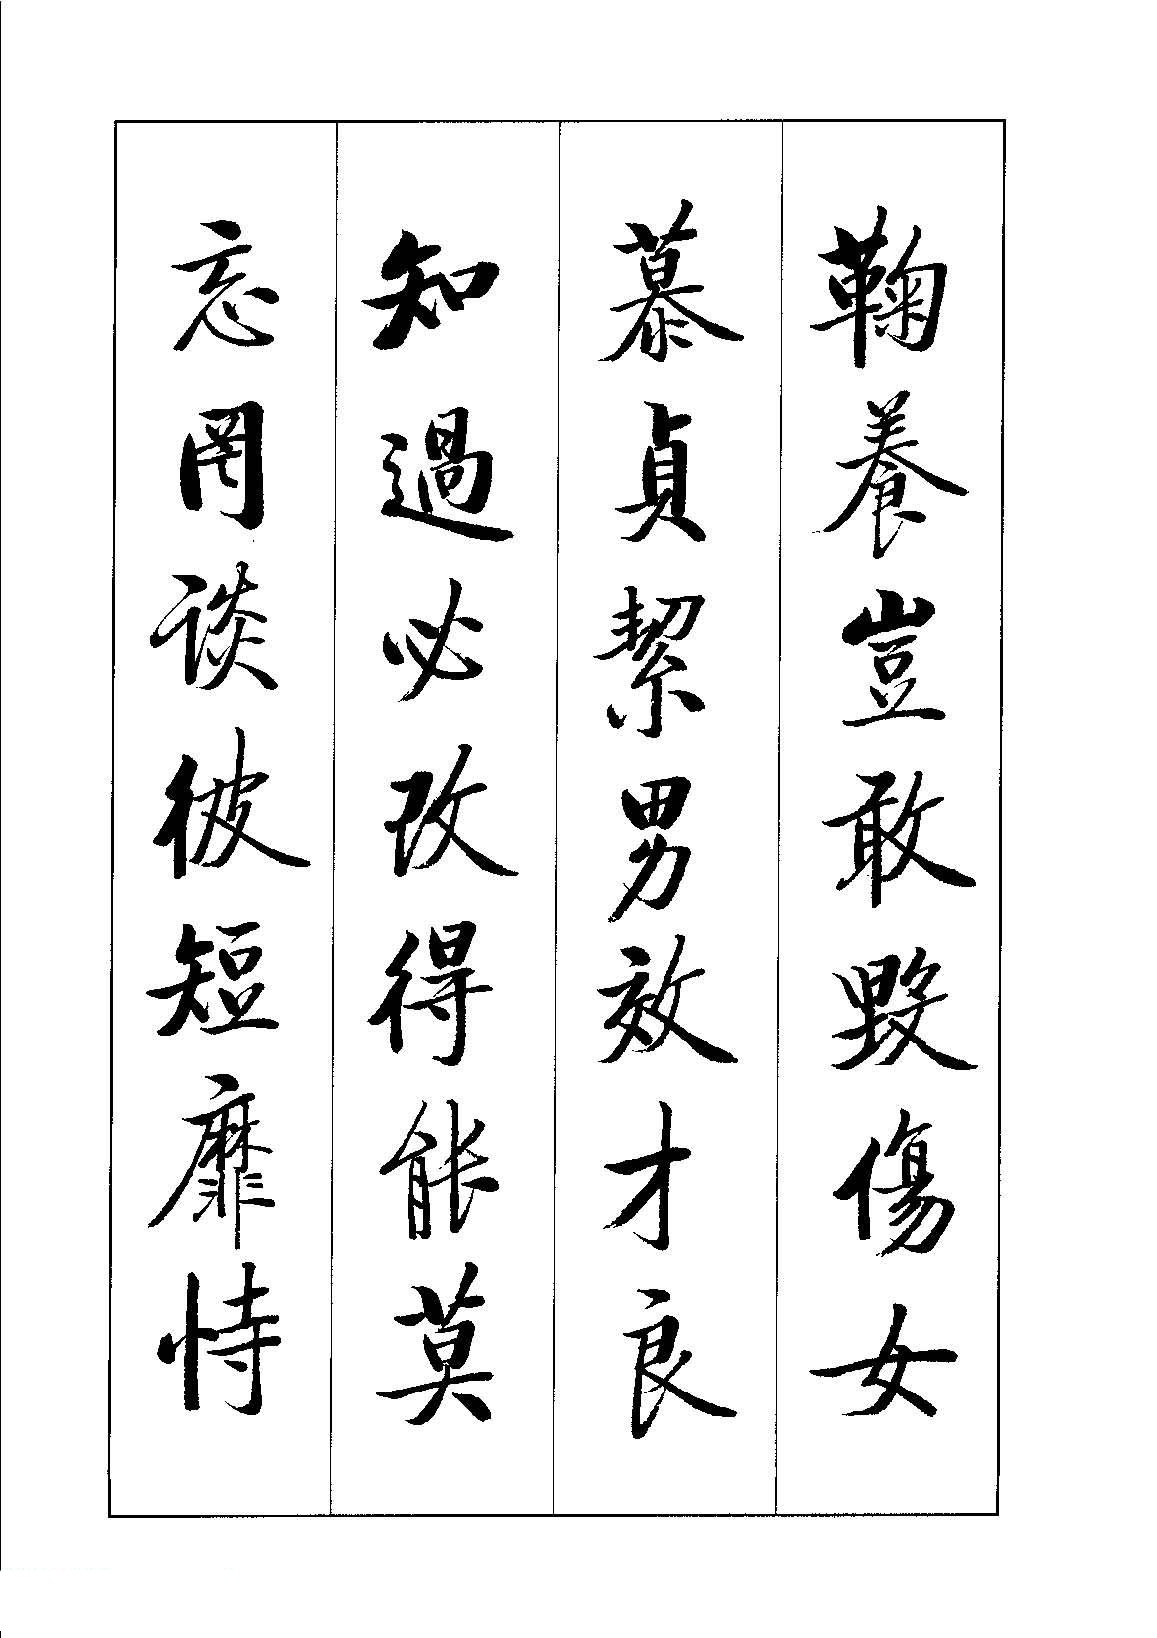 鞠養豈敢毀傷女
慕貞絜男效才良
知過必改得能莫
忘罔談彼短靡恃